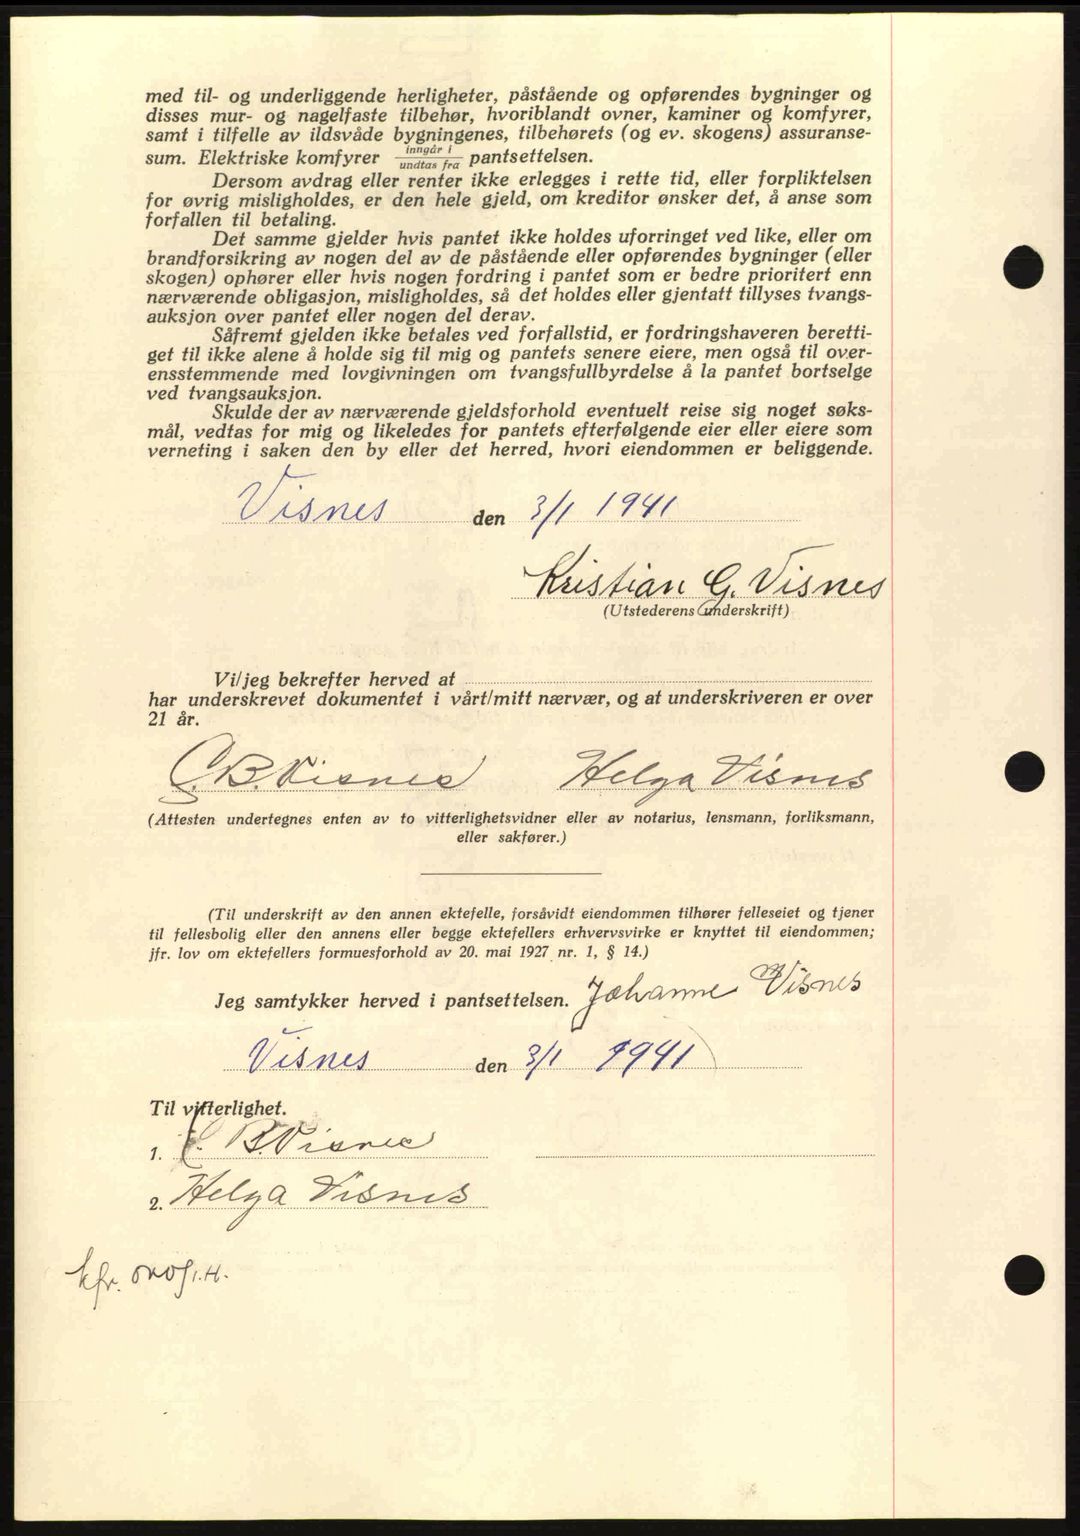 med til- og underliggende herligheter, påstående og opførendes bygninger og
disses mur- og nagelfaste tilbehør, hvoriblandt ovner, kaminer og komfyrer,
samt i tilfelle av ildsvåde bygningenes, tilbehørets (og ev. skogens) assuranse-
sum. Elektriske komfyrer inngår i / undtas fra pantsettelsen.
Dersom avdrag eller renter ikke erlegges i rette tid, eller forpliktelsen
for øvrig misligholdes, er den hele gjeld, om kreditor ønsker det, å anse som
forfallen til betaling.
Det samme gjelder hvis pantet ikke holdes uforringet ved like, eller om
brandforsikring av nogen del av de påstående eller opførendes bygninger (eller
skogen) ophører eller hvis nogen fordring i pantet som er bedre prioritert enn
nærværende obligasjon, misligholdes, så det holdes eller gjentatt tillyses tvangs-
auksjon over pantet eller nogen del derav.
Såfremt gjelden ikke betales ved forfallstid, er fordringshaveren beretti-
get til ikke alene å holde sig til mig og pantets senere eiere, men også til over-
ensstemmende med lovgivningen om tvangsfullbyrdelse å la pantet bortselge
ved tvangsauksjon.
Skulde der av nærværende gjeldsforhold eventuelt reise sig noget søks-
mål, vedtas for mig og likeledes for pantets efterfølgende eier eller eiere som
verneting i saken den by eller det herred, hvori eiendommen er beliggende.
Visnes den 3/1 1941
Kristian G. Visnes
(Utstederens underskrift)
Vi/jeg bekrefter herved at
har underskrevet dokumentet i vårt/mitt nærvær, og at underskriveren er over
21 år.
B. Visnes Helga Visnes
(Attesten undertegnes enten av to vitterlighetsvidner eller av notarius, lensmann, forliksmann,
eller sakfører.)
(Til underskrift av den annen ektefelle, forsåvidt eiendommen tilhører felleseiet og tjener
til fellesbolig eller den annens eller begge ektefellers erhvervsvirke er knyttet til eiendommen;
jfr. lov om ektefellers formuesforhold av 20. mai 1927 nr. 1, § 14.)
Jeg samtykker herved i pantsettelsen. Johanne Visnes
Visnes den 3/1 1941
Til vitterlighet.
1. B. Visnes
2. Helga Visnes
kfr.